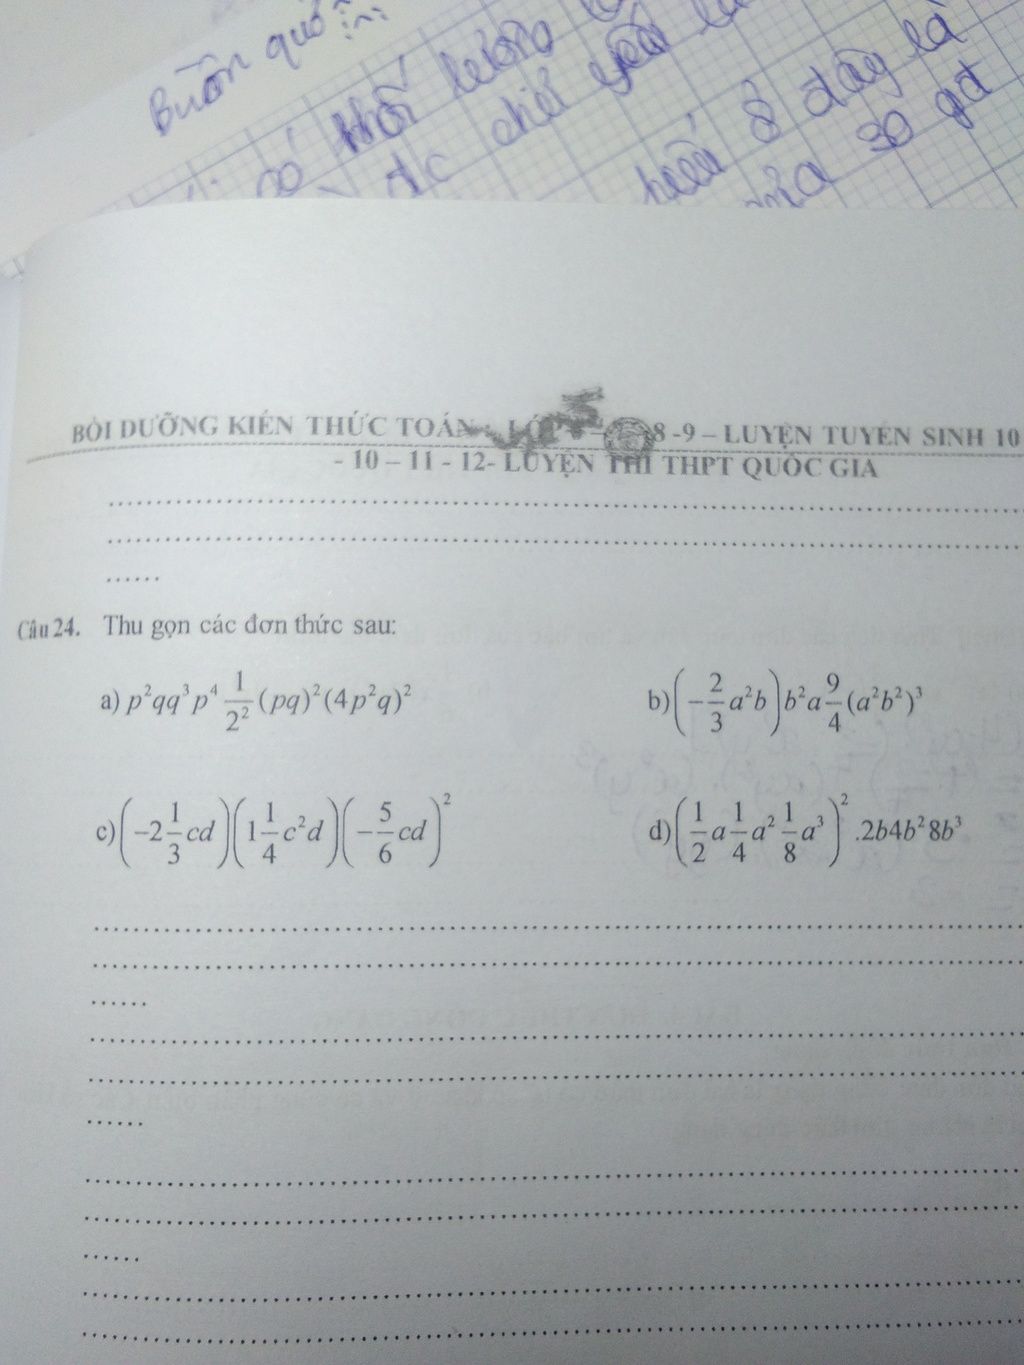 Buồn quớ
khối lượng
đc chiế yếu
hiếu 8 đây là
của 30 gđ
BỒI DƯỠNG KIẾN THỨC TOÁN: LỚP 8 -9 – LUYỆN TUYỂN SINH 10
- 10 – 11 - 12- LUYỆN THI THPT QUỐC GIA
Câu 24. Thu gọn các đơn thức sau:
a) p²qq³p⁴ 1/2² (pq)²(4p²q)² b) (−2/3 a²b) b²a 9/4 (a²b²)³
c) (−2 1/3 cd)(1 1/4 c²d)(−5/6 cd)² d) (1/2 a 1/4 a² 1/8 a³)² .2b4b²8b³